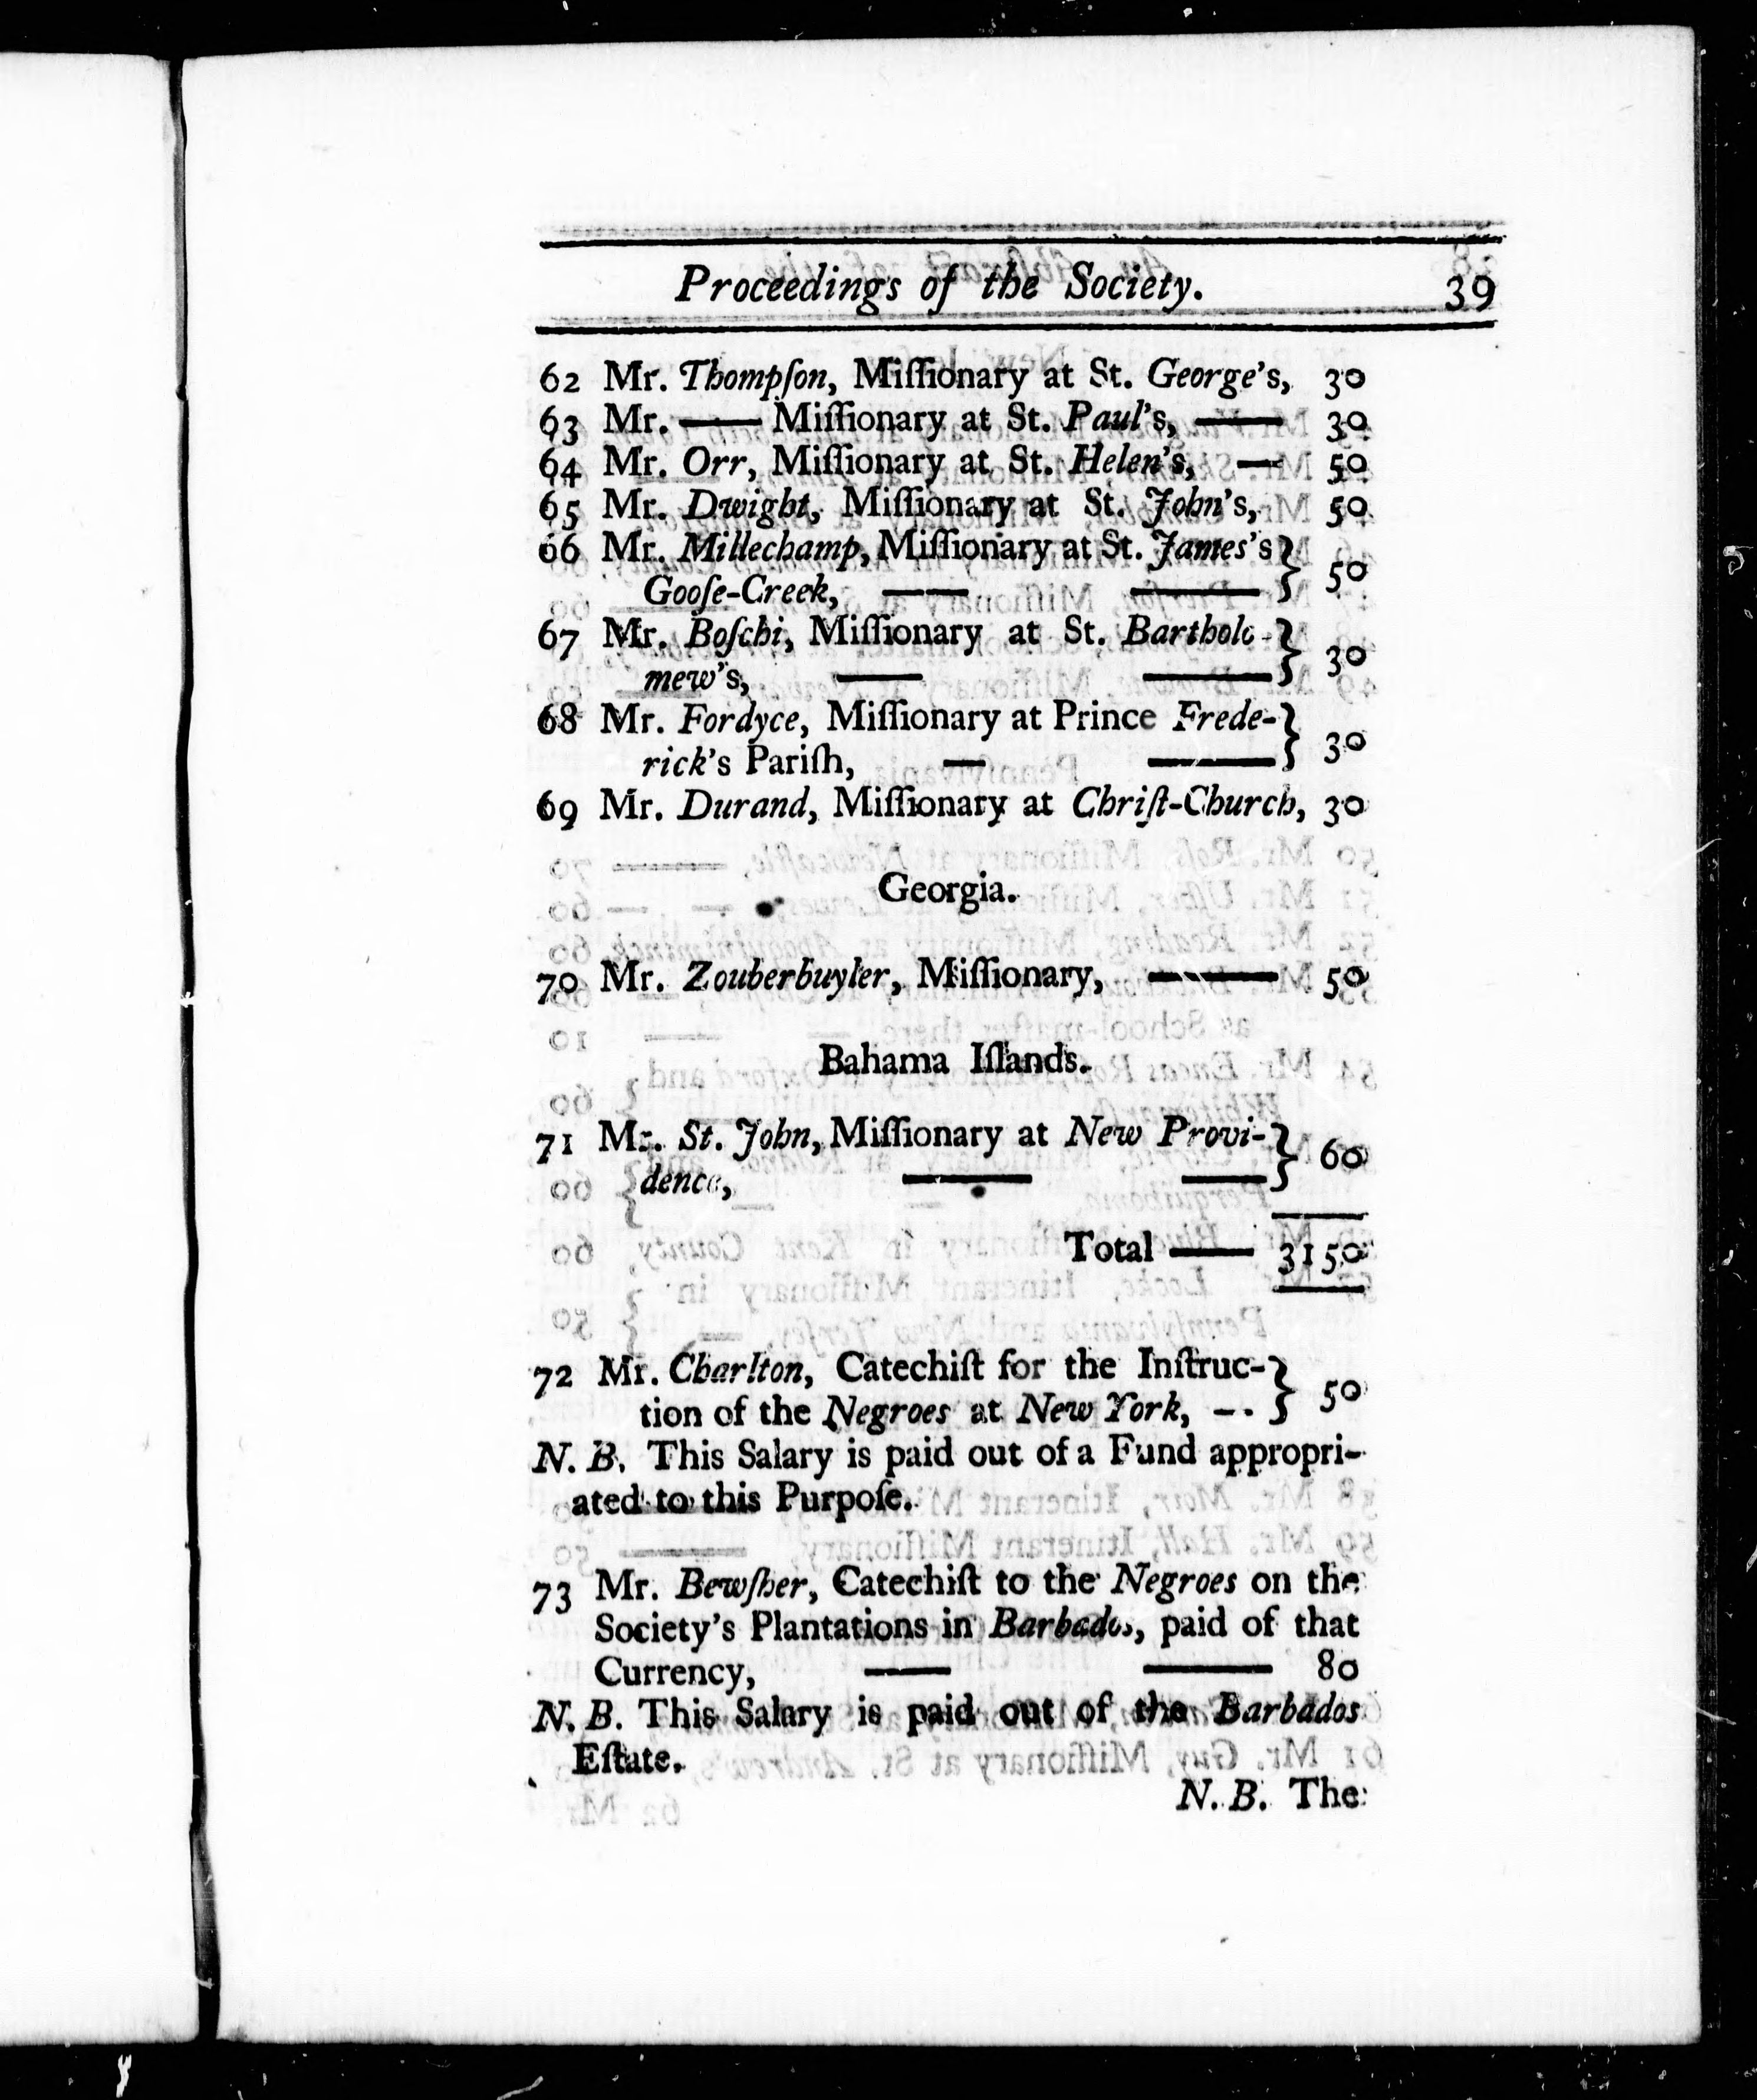 Proceedings of the Society. 39
62 Mr. Thompſon, Miſſionary at St. George's, 30
63 Mr. —— Miſſionary at St. Paul's, —— 30
64 Mr. Orr, Miſſionary at St. Helen's, — 50
65 Mr. Dwight, Miſſionary at St. John's, 50
66 Mr. Millechamp, Miſſionary at St. James's } 50
Gooſe-Creek, —— ——
67 Mr. Boſchi, Miſſionary at St. Bartholo- } 30
mew's, —— ——
68 Mr. Fordyce, Miſſionary at Prince Frede- } 30
rick's Pariſh, — ——
69 Mr. Durand, Miſſionary at Chriſt-Church, 30
Georgia.
70 Mr. Zouberbuyler, Miſſionary, —— 50
Bahama Iſlands.
71 Mr. St. John, Miſſionary at New Provi- } 60
dence, —— ——
Total —— 3150
72 Mr. Charlton, Catechiſt for the Inſtruc- } 50
tion of the Negroes at New York, —
N. B. This Salary is paid out of a Fund appropri-
ated to this Purpoſe.
73 Mr. Bewſher, Catechiſt to the Negroes on the
Society's Plantations in Barbados, paid of that
Currency, —— —— 80
N. B. This Salary is paid out of the Barbados
Eſtate.
N. B. The